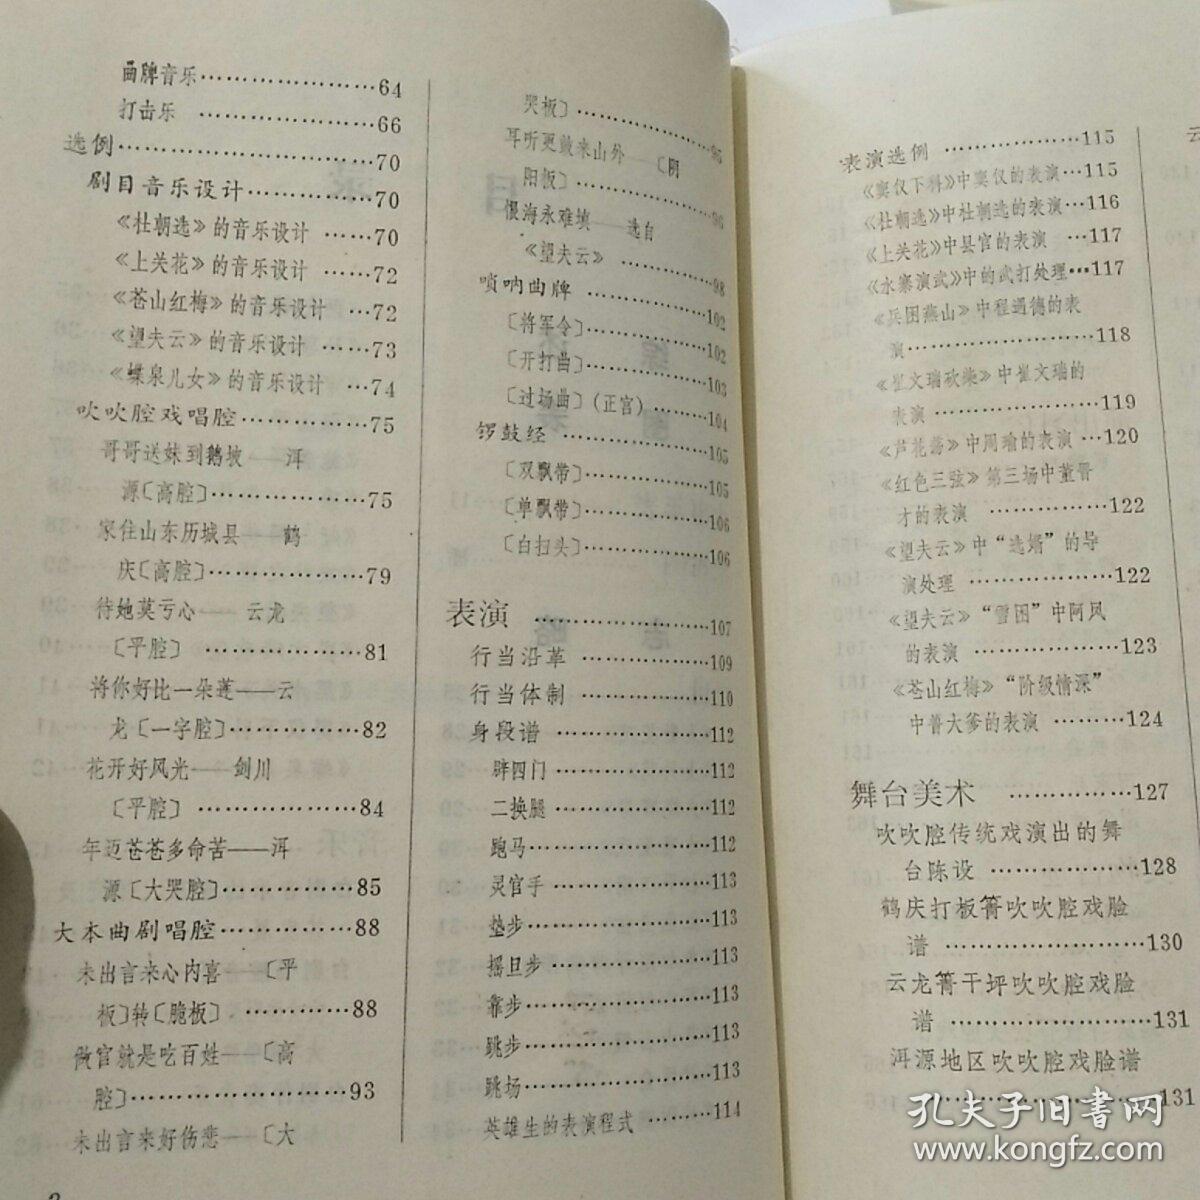 曲牌音乐…………………64
打击乐 …………………66
选例…………………………70
剧目音乐设计……………70
《杜朝选》的音乐设计 ……70
《上关花》的音乐设计 ……72
《苍山红梅》的音乐设计 …72
《望夫云》的音乐设计 ……73
《蝶泉儿女》的音乐设计 …74
吹吹腔戏唱腔……………75
哥哥送妹到鹅坡——洱
源〔高腔〕………………75
家住山东历城县——鹤
庆〔高腔〕………………79
待她莫亏心——云龙
〔平腔〕 ………………81
将你好比一朵莲——云
龙〔一字腔〕……………82
花开好风光——剑川
〔平腔〕 ………………84
年迈苍苍多命苦——洱
源〔大哭腔〕……………85
大本曲剧唱腔……………88
未出言来心内喜——〔平
板〕转〔脆板〕 …………88
做官就是吃百姓——〔高
腔〕………………………93
未出言来好伤悲——〔大
哭板〕………………95
耳听更鼓来山外——〔阴
阳板〕………………96
恨海永难填——选自
《望夫云》 …………98
唢呐曲牌 ……………102
〔将军令〕……………102
〔开打曲〕……………103
〔过场曲〕(正宫)………104
锣鼓经 ………………105
〔双飘带〕……………105
〔单飘带〕……………106
〔白扫头〕……………106
表演 …………………107
行当沿革 ……………109
行当体制 ……………110
身段谱 ………………112
辟四门 ………………112
二换腿 ………………112
跑马……………………112
灵官手 ………………113
垫步……………………113
摇旦步 ………………113
靠步……………………113
跳步……………………113
跳场……………………113
英雄生的表演程式 ……114
表演选例 ……………115
《窦仪下科》中窦仪的表演…115
《杜朝选》中杜朝选的表演…116
《上关花》中县官的表演 …117
《水寨演武》中的武打处理…117
《兵困燕山》中程遇德的表
演………………………118
《崔文瑞砍柴》中崔文瑞的
表演 …………………119
《芦花荡》中周瑜的表演 …120
《红色三弦》第三场中董晋
才的表演 ……………122
《望夫云》中“选婿”的导
演处理 ………………122
《望夫云》“雪困”中阿凤
的表演 ………………123
《苍山红梅》“阶级情深”
中普大爹的表演 ………124
舞台美术 ……………127
吹吹腔传统戏演出的舞
台陈设 ………………128
鹤庆打板箐吹吹腔戏脸
谱 ……………………130
云龙箐干坪吹吹腔戏脸
谱 ……………………131
洱源地区吹吹腔戏脸谱
……………………131
云
孔夫子旧书网
www.kongfz.com